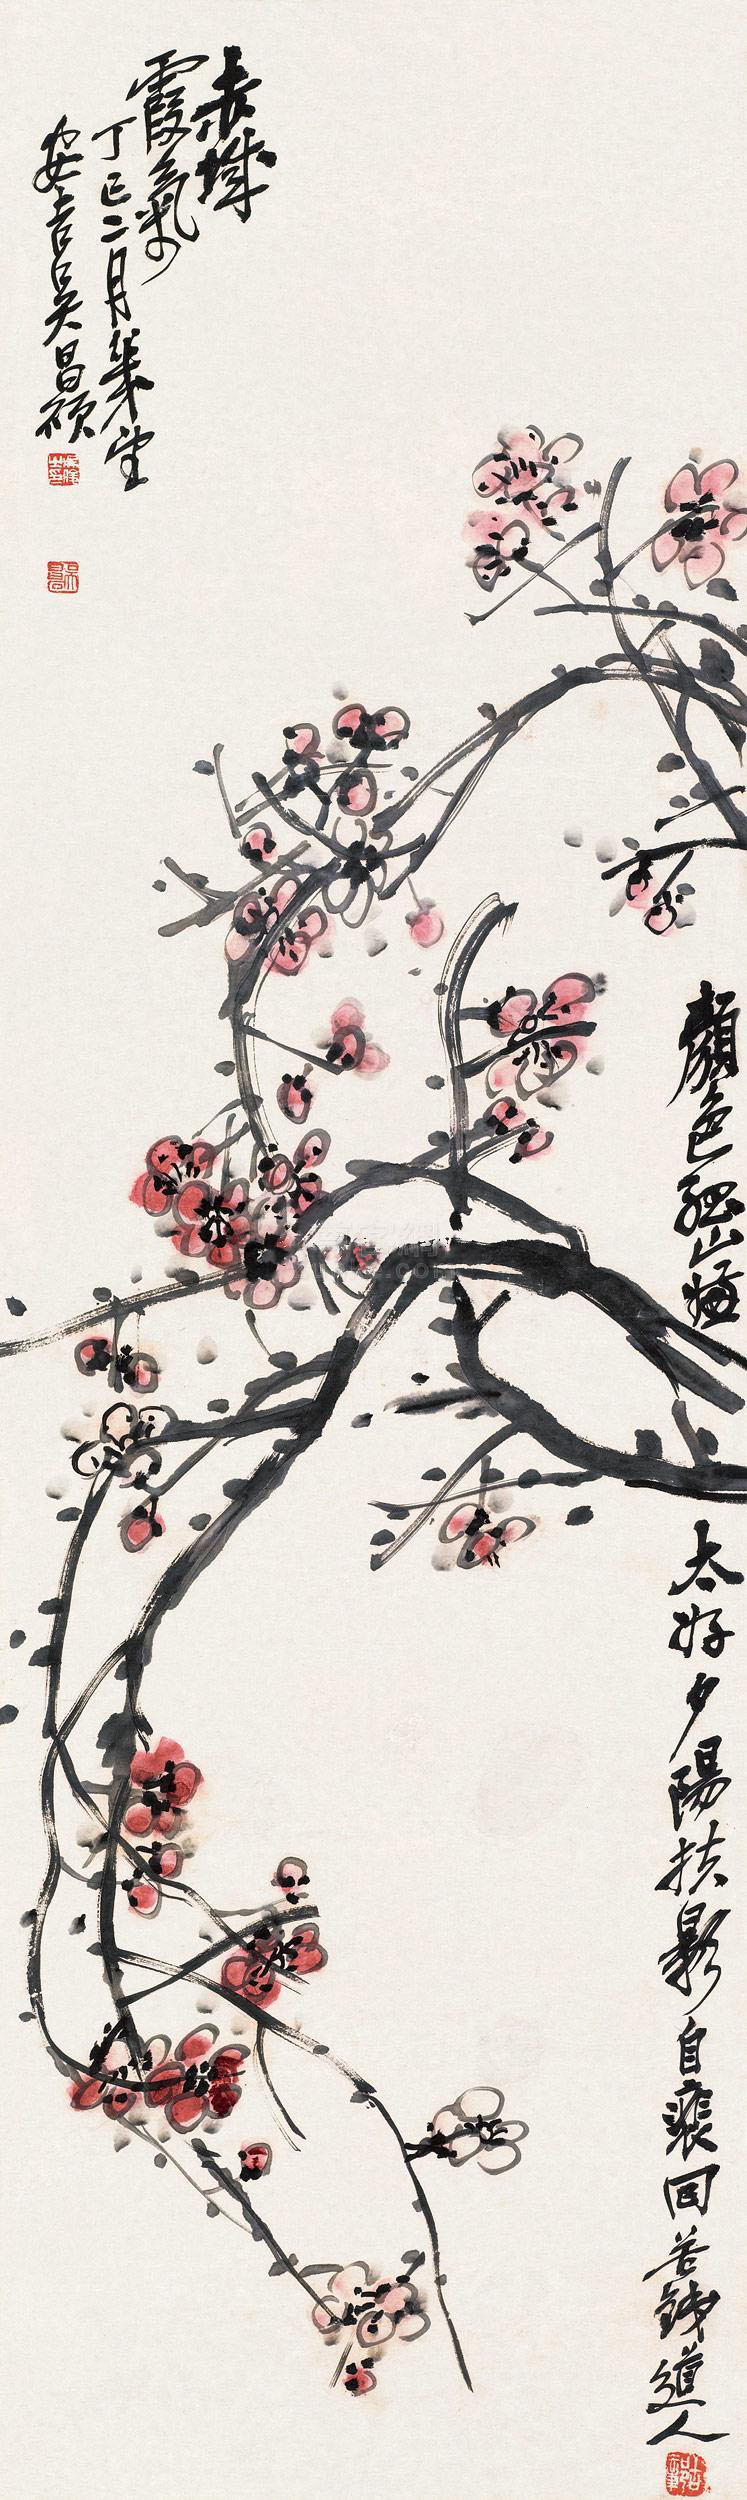 赤城
霞氣
丁巳二月幾望
安吉吳昌碩
顏色孤山獨
太好夕陽扶影自裵回苦鐵道人